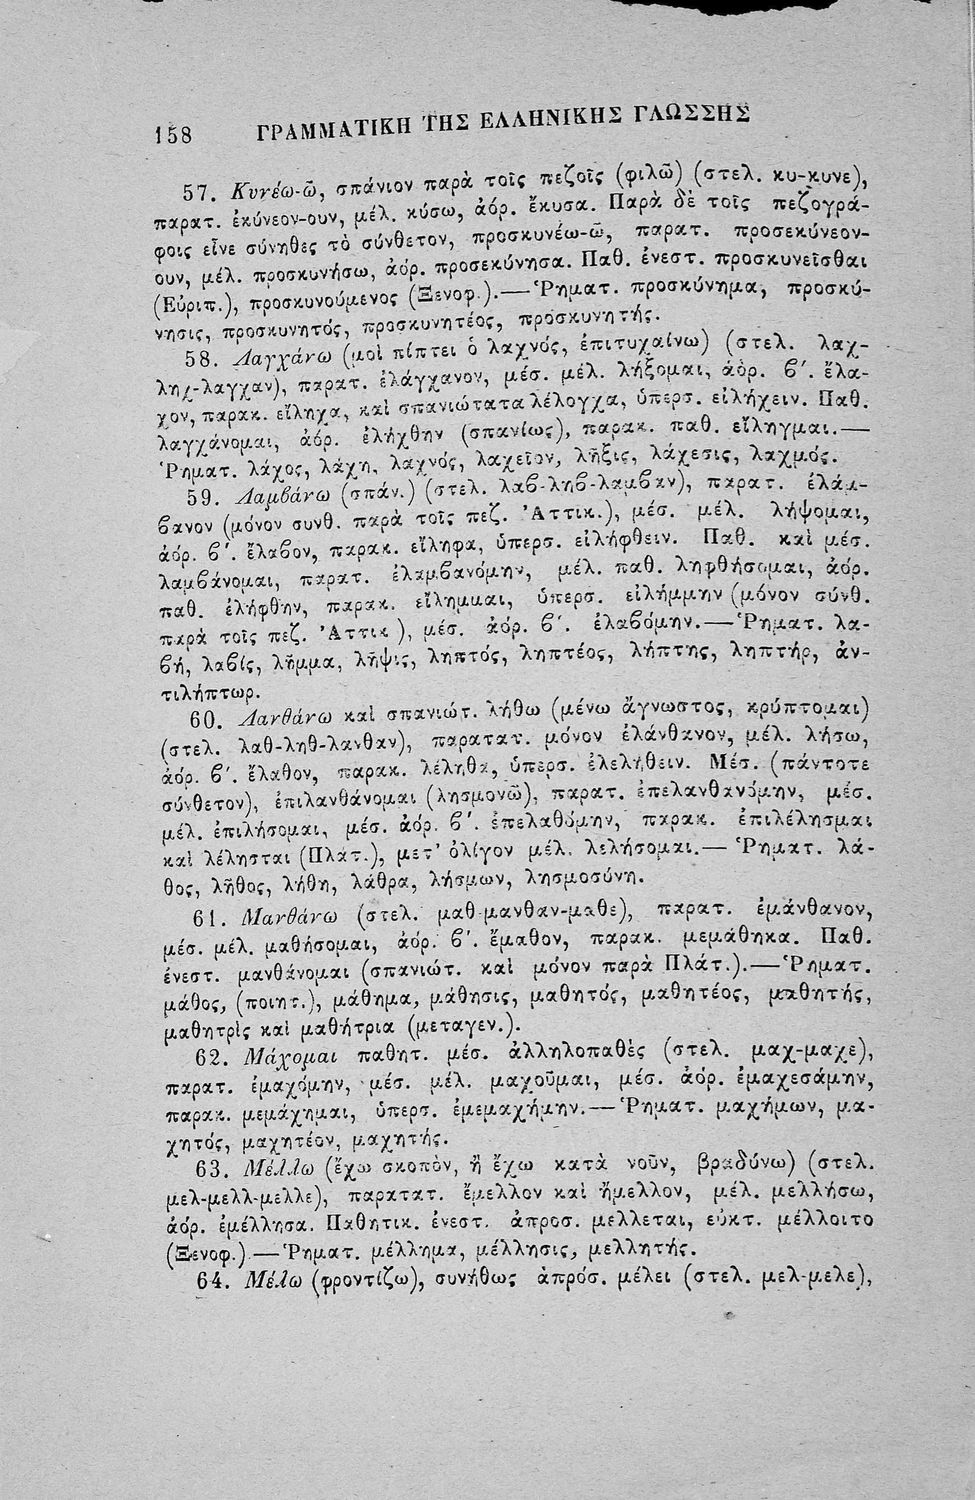 158 ΓΡΑΜΜΑΤΙΚΗ ΤΗΣ ΕΛΛΗΝΙΚΗΣ ΓΛΩΣΣΗΣ
57. Κυνέω-ῶ, σπάνιον παρὰ τοῖς πεζοῖς (φιλῶ) (στελ. κυ-κυνε),
παρατ. ἐκύνεον-ουν, μέλ. κύσω, ἀόρ. ἔκυσα. Παρὰ δὲ τοῖς πεζογρά-
φοις εἶνε σύνηθες τὸ σύνθετον, προσκυνέω-ῶ, παρατ. προσεκύνεον-
ουν, μέλ. προσκυνήσω, ἀόρ. προσεκύνησα. Παθ. ἐνεστ. προσκυνεῖσθαι
(Εὐριπ.), προσκυνούμενος (Ξενοφ.).—Ῥηματ. προσκύνημα, προσκύ-
νησις, προσκυνητός, προσκυνητέος, προσκυνητής.
58. Λαγχάνω (μοὶ πίπτει ὁ λαχνός, ἐπιτυχαίνω) (στελ. λαχ-
ληχ-λαγχαν), παρατ. ἐλάγχανον, μέσ. μέλ. λήξομαι, ἀόρ. ϐ΄. ἔλα-
χον, παρακ. εἴληχα, καὶ σπανιώτατα λέλογχα, ὑπερσ. εἰλήχειν. Παθ.
λαγχάνομαι, ἀόρ. ἐλήχθην (σπανίως), παρακ. παθ. εἴληγμαι.—
Ῥηματ. λάχος, λάχη, λαχνός, λαχεῖον, λῆξις, λάχεσις, λαχμός.
59. Λαμβάνω (σπάν.) (στελ. λαϐ-ληϐ-λαμϐαν), παρατ. ἐλάμ-
ϐανον (μόνον συνθ. παρὰ τοῖς πεζ. Ἀττικ.), μέσ. μέλ. λήψομαι,
ἀόρ. ϐ΄. ἔλαϐον, παρακ. εἴληφα, ὑπερσ. εἰλήφθειν. Παθ. καὶ μέσ.
λαμϐάνομαι, παρατ. ἐλαμϐανόμην, μέλ. παθ. ληφθήσομαι, ἀόρ.
παθ. ἐλήφθην, παρακ. εἴλημμαι, ὑπερσ. εἰλήμμην (μόνον σύνθ.
παρὰ τοῖς πεζ. Ἀττικ ), μέσ. ἀόρ. ϐ΄. ἐλαϐόμην.—Ῥηματ. λα-
ϐή, λαϐίς, λῆμμα, λῆψις, ληπτός, ληπτέος, λήπτης, ληπτήρ, ἀν-
τιλήπτωρ.
60. Λανθάνω καὶ σπανιώτ. λήθω (μένω ἄγνωστος, κρύπτομαι)
(στελ. λαθ-ληθ-λανθαν), παρατατ. μόνον ἐλάνθανον, μέλ. λήσω,
ἀόρ. ϐ΄. ἔλαθον, παρακ. λέληθα, ὑπερσ. ἐλελήθειν. Μέσ. (πάντοτε
σύνθετον), ἐπιλανθάνομαι (λησμονῶ), παρατ. ἐπελανθανόμην, μέσ.
μέλ. ἐπιλήσομαι, μέσ. ἀόρ. ϐ΄. ἐπελαθόμην, παρακ. ἐπιλέλησμαι
καὶ λέλησται (Πλάτ.), μετ' ὀλίγον μέλ. λελήσομαι.— Ῥηματ. λά-
θος, λῆθος, λήθη, λάθρα, λήσμων, λησμοσύνη.
61. Μανθάνω (στελ. μαθ-μανθαν-μαθε), παρατ. ἐμάνθανον,
μέσ. μέλ. μαθήσομαι, ἀόρ. ϐ΄. ἔμαθον, παρακ. μεμάθηκα. Παθ.
ἐνεστ. μανθάνομαι (σπανιώτ. καὶ μόνον παρὰ Πλάτ.).—Ῥηματ.
μάθος, (ποιητ.), μάθημα, μάθησις, μαθητός, μαθητέος, μαθητής,
μαθητρὶς καὶ μαθήτρια (μεταγεν.).
62. Μάχομαι παθητ. μέσ. ἀλληλοπαθὲς (στελ. μαχ-μαχε),
παρατ. ἐμαχόμην, μέσ. μέλ. μαχοῦμαι, μέσ. ἀόρ. ἐμαχεσάμην,
παρακ. μεμάχημαι, ὑπερσ. ἐμεμαχήμην.—Ῥηματ. μαχήμων, μα-
χητός, μαχητέον, μαχητής.
63. Μέλλω (ἔχω σκοπὸν, ἢ ἔχω κατὰ νοῦν, βραδύνω) (στελ.
μελ-μελλ-μελλε), παρατατ. ἔμελλον καὶ ἤμελλον, μέλ. μελλήσω,
ἀόρ. ἐμέλλησα. Παθητικ. ἐνεστ. ἀπροσ. μέλλεται, εὐκτ. μέλλοιτο
(Ξενοφ.).—Ῥηματ. μέλλημα, μέλλησις, μελλητής.
64. Μέλω (φροντίζω), συνήθως ἀπρόσ. μέλει (στελ. μελ-μελε),